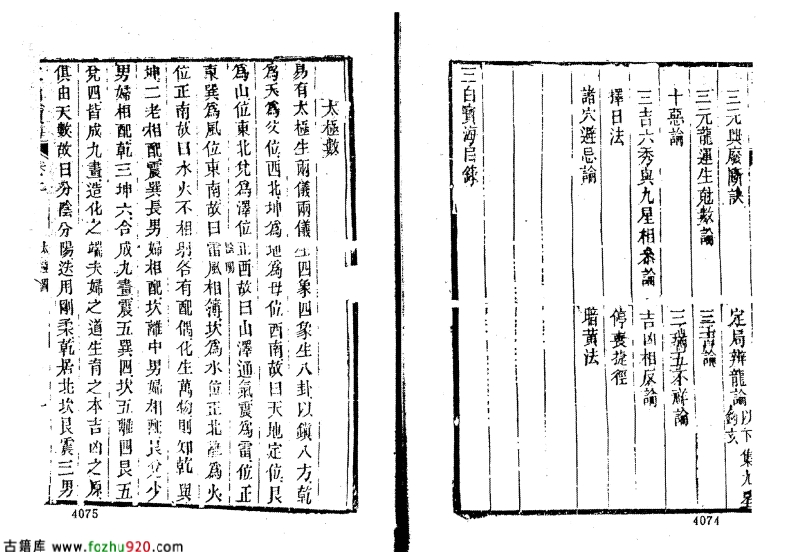 三元興廢斷訣
定局辨龍論以下集九星
鈴玄
三元龍運生尅數論
三吉論
十惡論
三瑞五不祥論
三吉六秀與九星相參論
吉凶相反論
擇日法
停喪捷徑
諸穴避忌論
暗黃法
三白寶海目錄
4074
太極數
易有太極生兩儀兩儀生四象四象生八卦以鎮八方乾
為天為父位西北坤為地為母位西南故曰天地定位艮
為山位東北兌為澤位正西故曰山澤通氣震為雷位正
東巽為風位東南故曰雷風相薄坎為水位正北離為火
位正南故曰水火不相射各有配偶化生萬物則知乾與
坤二老相配震巽長男婦相配坎離中男婦相配艮兌少
男婦相配乾三坤六合成九畫震五巽四坎五離四艮五
兌四皆成九畫造化之端夫婦之道生育之本吉凶之原
俱由天數故曰分陰分陽迭用剛柔乾居北坎艮震三男
4075
古籍库 www.fozhu920.com